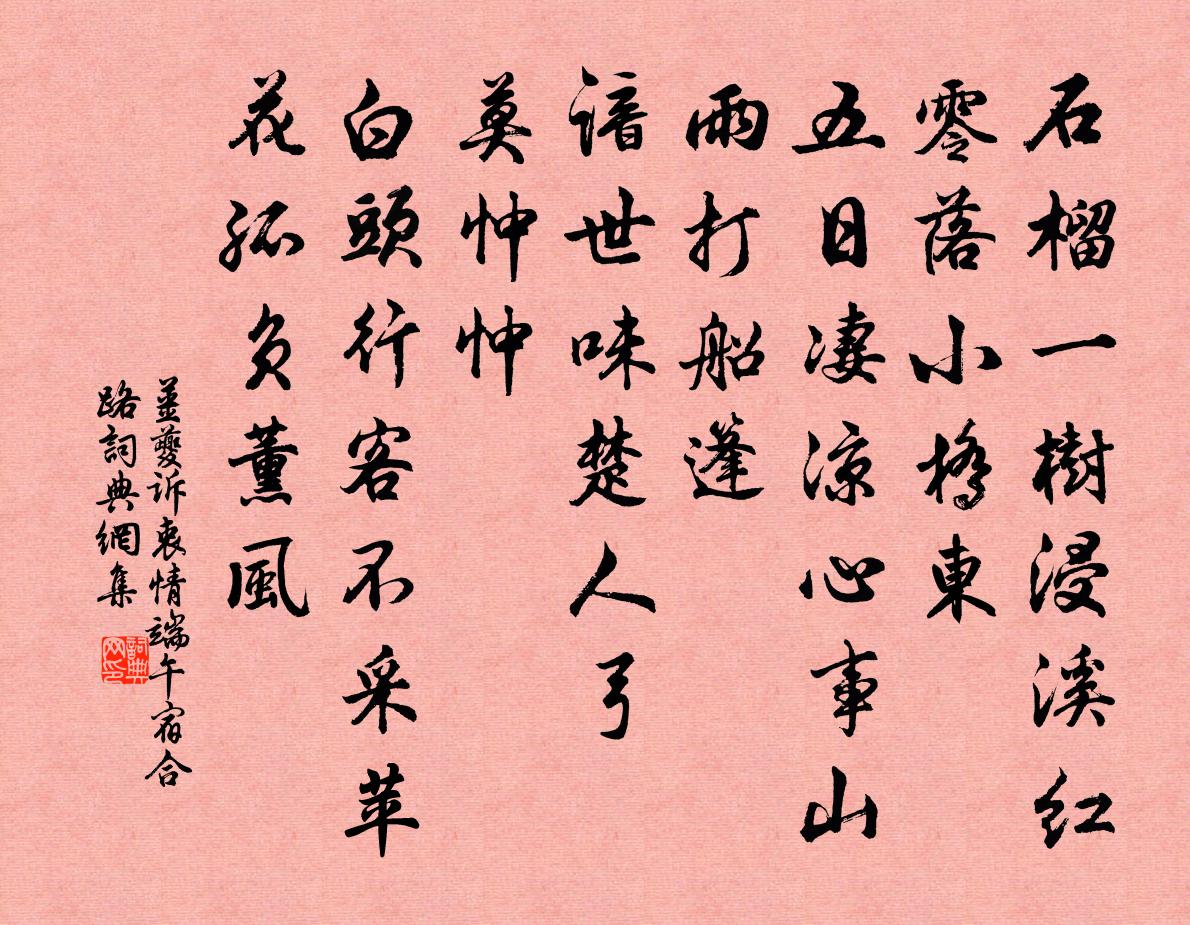 石榴一樹浸溪紅
零落小橋東
五日凄涼心事山
雨打船篷
諳世味楚人弓
莫忡忡
白頭行客不采苹
花孤負薰風
薑夔訴衷情端午宿合
路詞典網集
詞典网印